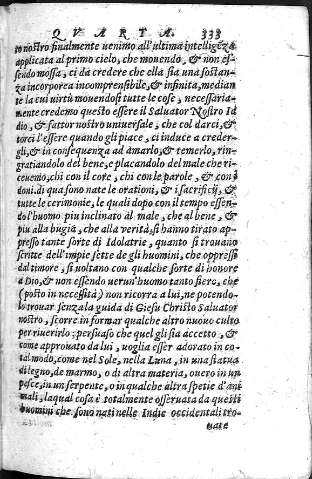 QVARTA. 333
to nostro finalmente uenimo all'ultima intelligẽza
applicata al primo cielo, che mouendo, & non es-
sendo mossa, ci da credere che ella sia una sostan-
za incorporea incomprensibile, & infinita, median
te la cui uirtù mouendosi tutte le cose, necessaria-
mente credemo questo essere il Saluator Nostro Id
dio, & fattor nostro uniuersale, che col darci, &
torci l'essere quando gli piace, ci induce a creder-
gli, & in consequenza ad amarlo, & temerlo, rin-
gratiandolo del bene, e placandolo del male che ri-
ceuemo, chi con il core, chi con le parole, & con i
doni. di qua sono nate le orationi, & i sacrificij, &
tutte le cerimonie, le quali dopo con il tempo essen-
do l'huomo piu inclinato al male, che al bene, &
piu alla bugia, che alla verità, si hanno tirato ap-
presso tante sorte di Idolatrie, quanto si trouano
scritte dell'impie sette de gli huomini, che oppresso
dal timore, si uoltano con qualche sorte di honore
a Dio, & non essendo uerun'huomo tanto fiero, che
(posto in necessità) non ricorra a lui, ne potendo-
lo trouar senza la guida di Giesu Christo Saluator
nostro, scorre in formar qualche altro nuouo culto
per riuerirlo: persuaso che quel gli sia accetto, &
come approuato da lui, uoglia esser adorato in co-
tal modo, come nel Sole, nella Luna, in una statua
di legno, de marmo, o di altra materia, ouero in un
pesce, in un serpente, o in qualche altra spetie d'ani
mali, laqual cosa è totalmente osseruata da questi
huomini che sono nati nelle Indie occidentali tro-
uate